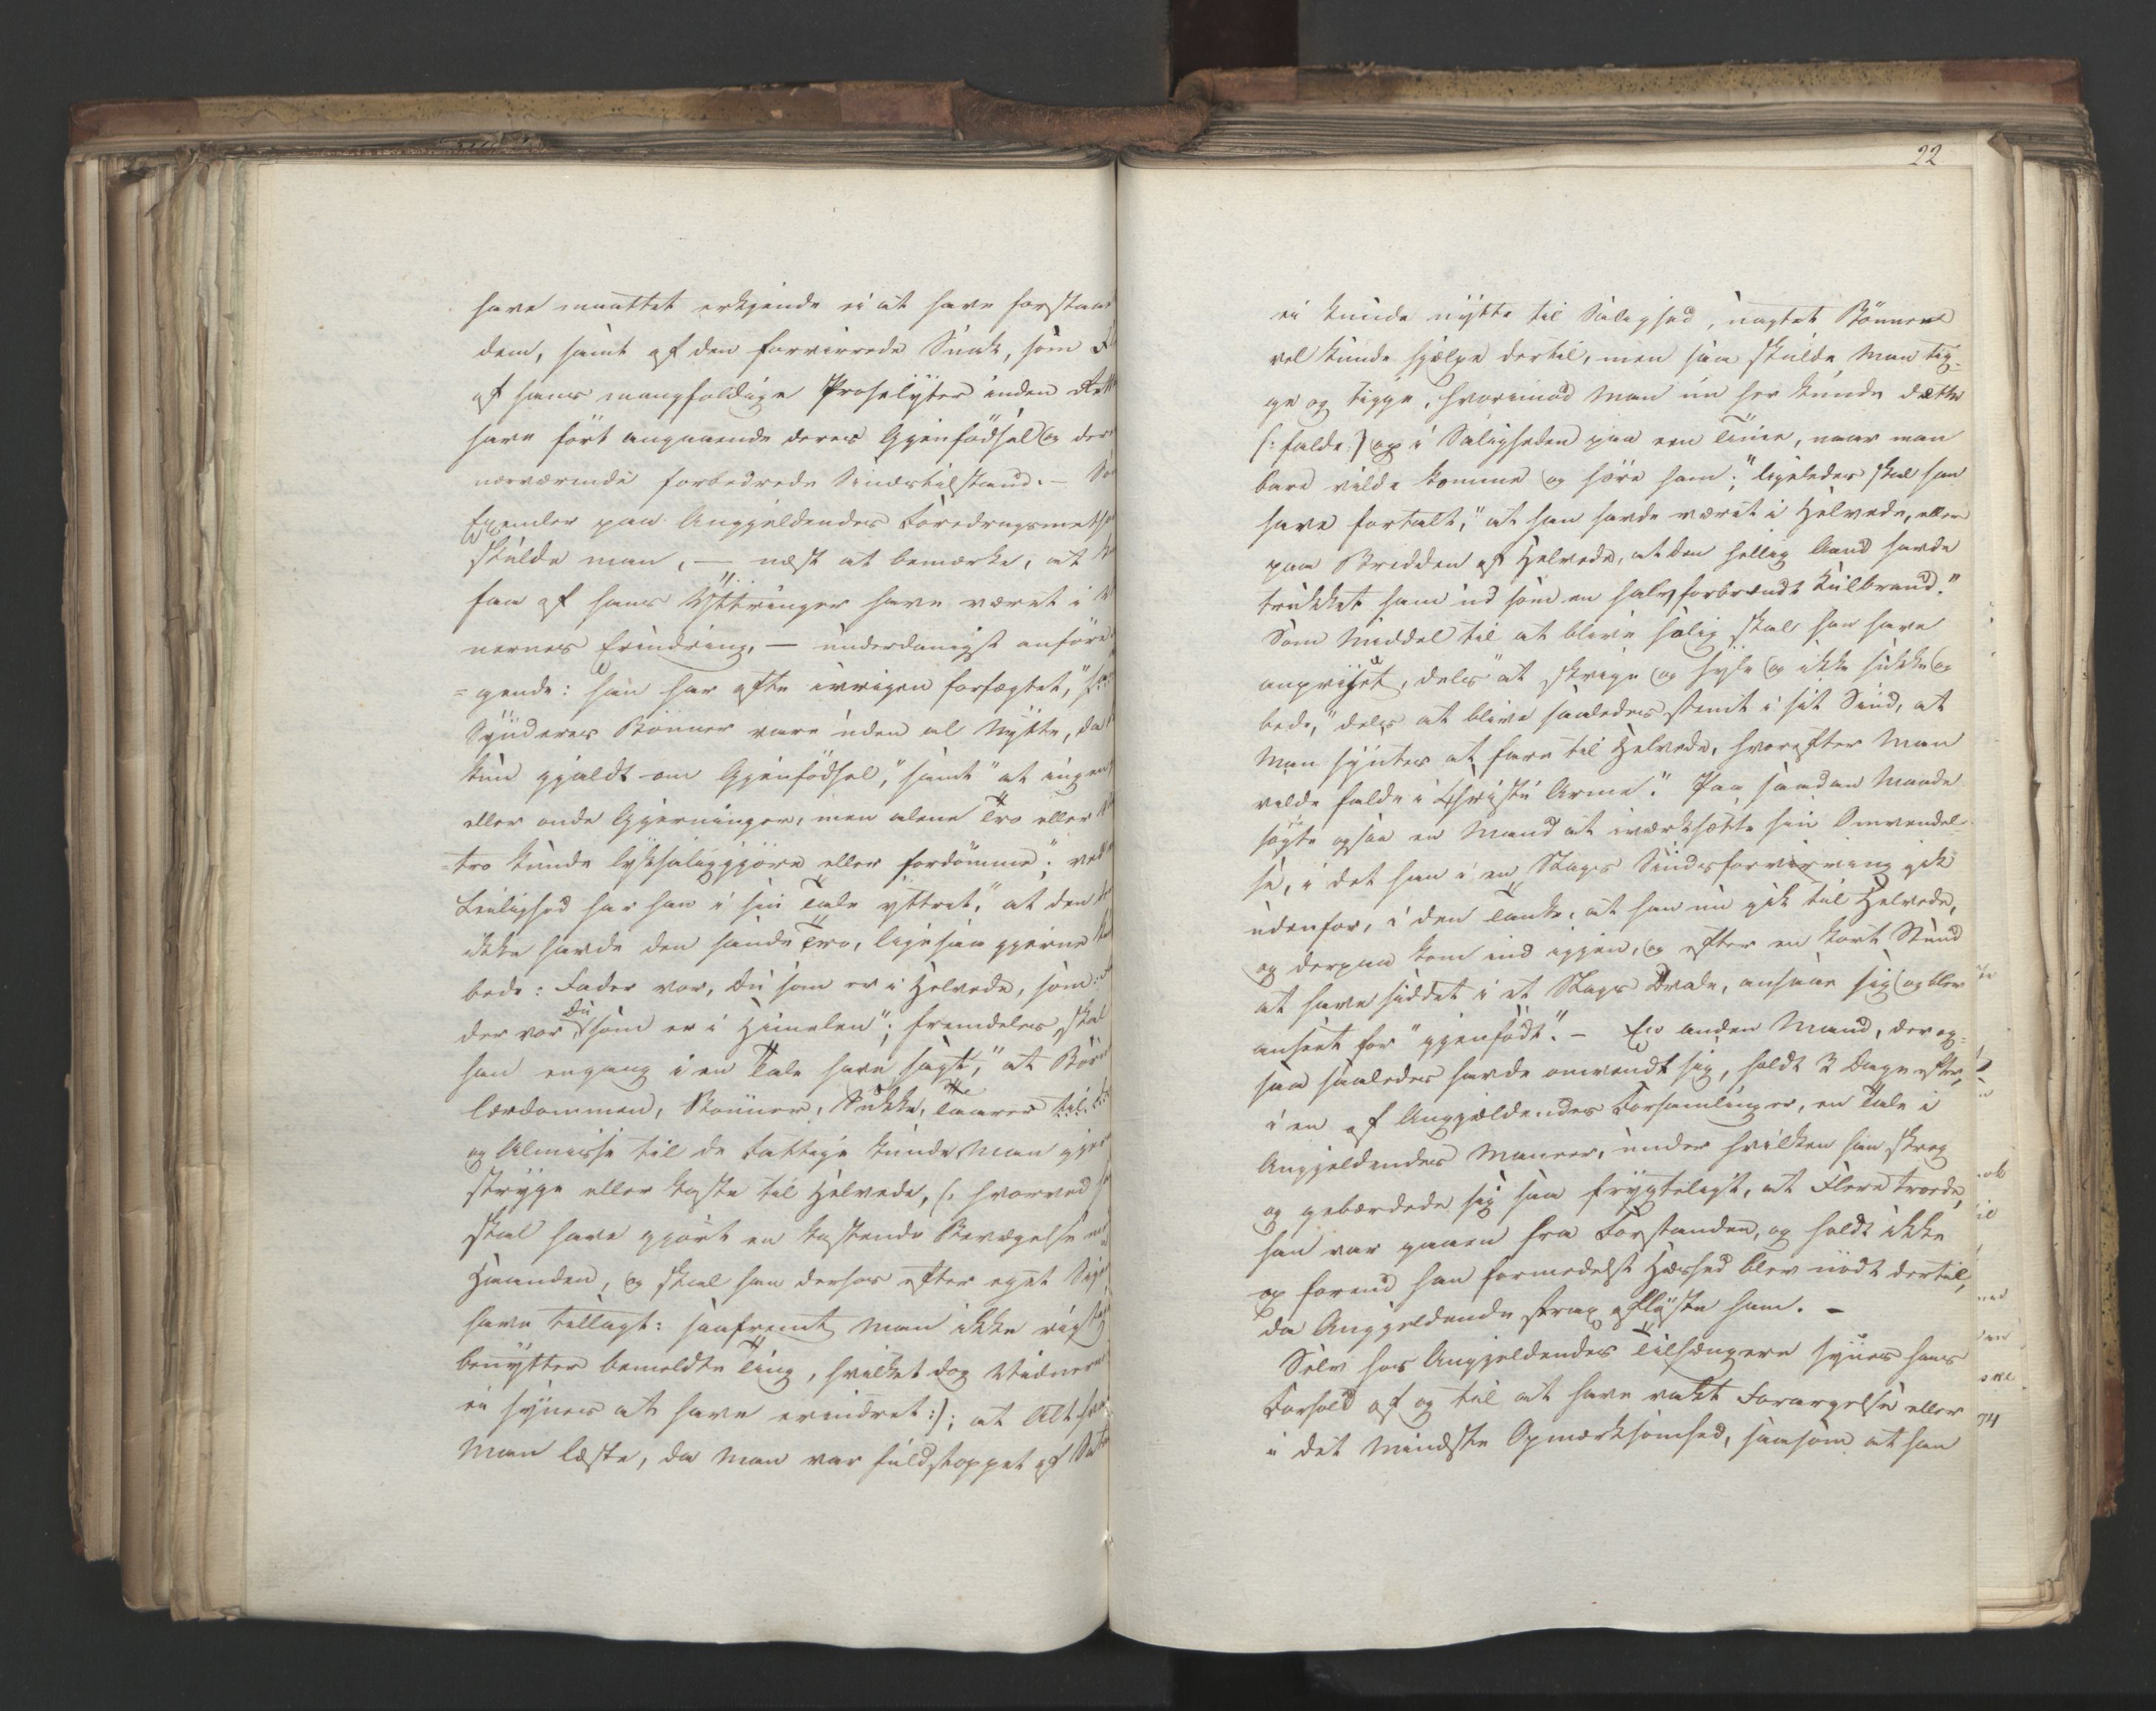 have maattet erkjende ei at have forstaa
dem, samt af den forvirrede Snak, som
af hans mangfoldige Proselyter inden
have ført angaaende deres Gjenfödsel og der
nærværende forbedrede Sindstilstand. –
Exempler paa Angjeldendes Foredragsmetho
skulde man, — næst at bemærke, at
faa af hans Yttringer have været i
nernes Erindring, — underdanigst anföre
=gende: han har ofte ivrigen forfægtet, "
Synderes Bönner vare uden al Nytte, da
kun gjaldt om Gjenfödsel," samt "at ingen
eller onde Gjerninger, men alene Tro eller
=tro kunde lyksaliggjöre eller fordömme"; ved
Leilighed har han i sin Tale yttret, "at den
ikke havde den sande Tro, ligesaa gjerne
bede: Fader vor, Du som er i Helvede, som:
der vor Du som er i Himelen"; fremdeles skal
han engang i en Tale have sagt, "at Bör
lærdommen, Bönner, Sukke, Taarer
og Almisse til de Fattige kunde Man gjer
stryge eller kaste til Helvede, (: hvorved
skal have gjort en kastende Bevægelse
Haanden, og skal han derhos efter eget
have tillagt: saafremt Man ikke rig
benytter bemeldte Ting, hvilket dog Vidner
ei synes at have erindret:); at Alt
Man læste, da Man var fuldstoppet af
22
ei kunde nytte til Salighed, uagtet Bönnen
vel kunde hjælpe dertil, men saa skulde Man tig=
ge og tigge, hvorimod Man nu her kunde dætte
(: falde :) op i Saligheden paa een Time, naar man
bare vilde komme og höre ham"; ligeledes skal han
have fortalt, "at han havde været i Helvede, eller
paa Bredden af Helvede, at den hellig Aand havde
trukket ham ud som en halvforbrændt Kulbrand."
Som Middel til at blive salig skal han have
anpriset, deels "at skrige og hyle og ikke sukke og
bede," deels at blive saaledes stemt i sit Sind, at
Man syntes at fare til Helvede, hvorefter Man
vilde falde i Christi Arme". Paa saadan Maade
søgte ogsaa en Mand at iværksætte sin Omvendel=
se, i det han i en Slags Sindsforvirring gik
udenfor, i den Tanke, at han nu gik til Helvede,
og derpaa kom ind igjen, og efter en kort Stund
at have siddet i et Slags Dvale, ansaae sig og blev
anseet for "gjenfödt". – En anden Mand, der og=
saa saaledes havde omvendt sig, holdt 3 Dage efter,
i en af Angjældendes Forsamlinger, en Tale i
Angjeldendes Maneer, under hvilken han skreg
og gebærdede sig saa frygteligt, at Flere troede,
han var gaaen fra Forstanden, og holdt ikke
op forend han formedelst Hæshed blev nödt dertil,
da Angjeldende strax aflöste ham. –
Selv hos Angjeldendes Tilhængere synes hans
Forhold af og til at have vakt Forargelse eller
i det Mindste Opmærksomhed, saasom at han